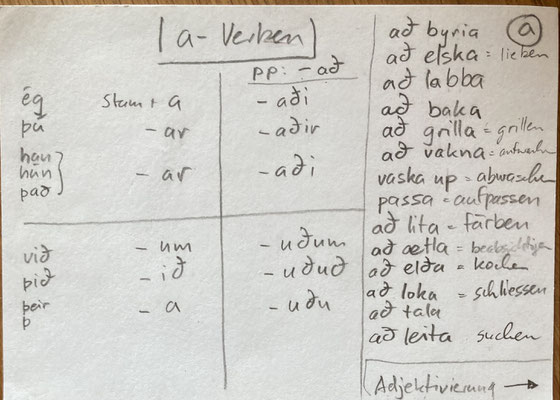 a - Verben
pp: - að
ég Stam + a - aði
þú - ar - aðir
han
hún - ar - aði
það
við - um - uðum
þið - ið - uðuð
þeir - a - uðu
þ
a
að byria
að elska = lieben
að labba
að baka
að grilla = grillen
að vakna =
vaska up = abwaschen
passa = aufpassen
að lita = färben
að ætla = beabsichtigen
að elda = kochen
að loka = schliessen
að tala
að leita suchen
Adjektivierung →